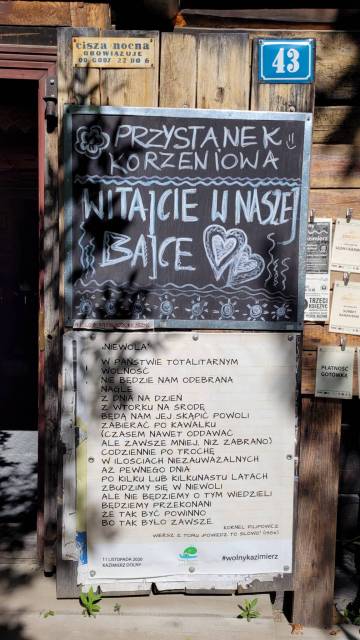 cisza nocna
OBOWIĄZUJE
OD GODZ 22 DO 6
43
PRZYSTANEK
KORZENIOWA
WITAJCIE W NASZEJ
BAJCE
"NIEWOLA"
W PAŃSTWIE TOTALITARNYM
WOLNOŚĆ
NIE BĘDZIE NAM ODEBRANA
NAGLE
Z DNIA NA DZIEŃ
Z WTORKU NA ŚRODĘ
BĘDĄ NAM JEJ SKĄPIĆ POWOLI
ZABIERAĆ PO KAWAŁKU
(CZASEM NAWET ODDAWAĆ
ALE ZAWSZE MNIEJ, NIŻ ZABRANO)
CODZIENNIE PO TROCHĘ
W ILOŚCIACH NIEZAUWAŻALNYCH
AŻ PEWNEGO DNIA
PO KILKU LUB KILKUNASTU LATACH
ZBUDZIMY SIĘ W NIEWOLI
ALE NIE BĘDZIEMY O TYM WIEDZIELI
BĘDZIEMY PRZEKONANI
ŻE TAK BYĆ POWINNO
BO TAK BYŁO ZAWSZE
KORNEL FILIPOWICZ
WIERSZ Z TOMU "POWIEDZ TO SŁOWO"
11 LISTOPADA 2020
KAZIMIERZ DOLNY
#wolnykazimierz
kazimierz
TRZECI
KSIĘŻYC
PŁATNOŚĆ
GOTÓWKĄ